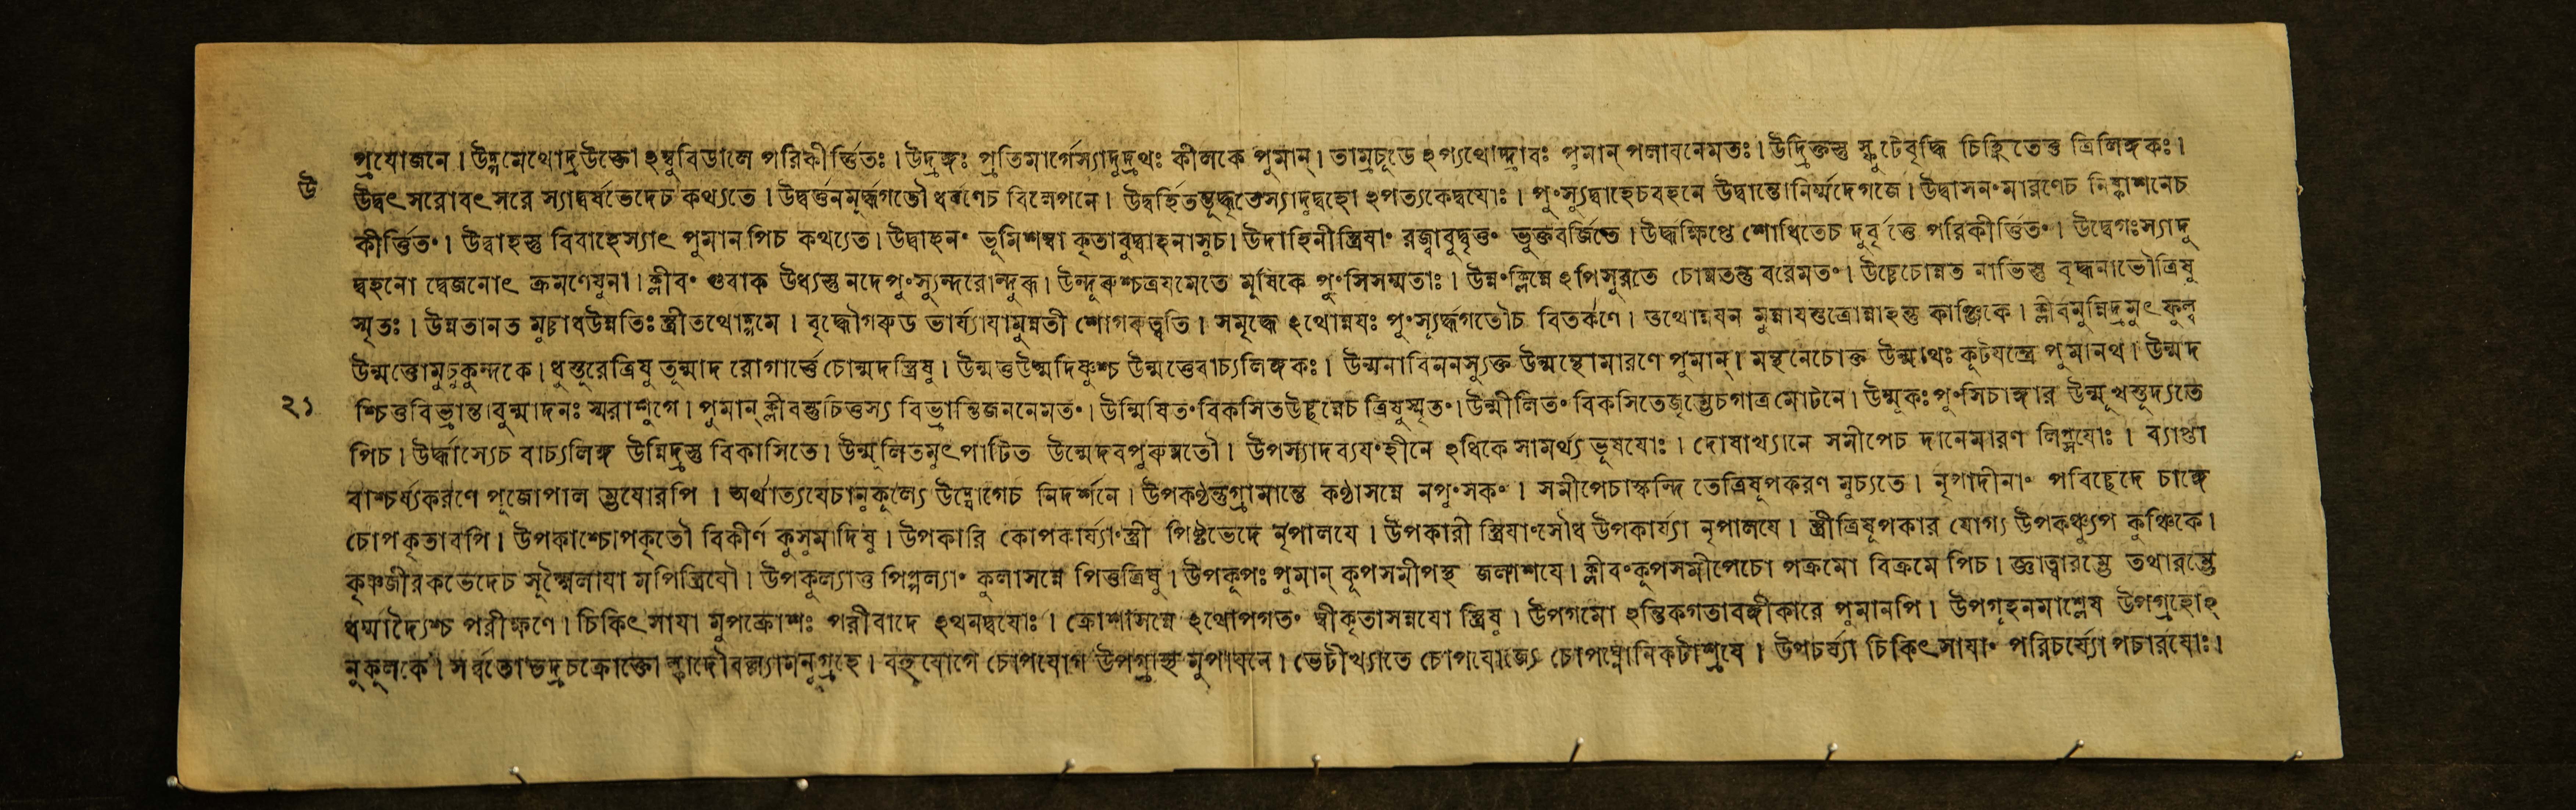 প্রযোজনে। উদ্গমেথোদ্রউক্তো ঽম্বুবিডালে পরিকীর্ত্তিতঃ। উদ্রঙ্গঃ প্রতিমার্গেস্যাদুদ্রথঃ কীলকে পুমান্। তাম্রচূডে ঽপ্যথোদ্দ্রাবঃ পুমান্ পলাবনেমতঃ। উদ্রিক্তস্তু স্ফুটেবৃদ্ধি চিহ্নিতেত্ত ত্রিলিঙ্গকঃ।
উ
উদ্বৎসরোবৎসরে স্যাদ্বর্ষভেদেচ কথ্যতে। উদ্বর্ত্তনমূর্দ্ধগতৌ ধর্ষণেচ বিলেপনে। উদ্বর্হিতস্তূদ্ধৃতেস্যাদুদ্বহো ঽপত্যকেদ্বযোঃ। পুংস্যুদ্বাহেচবহনে উদ্বান্তোনির্ম্মদেগজে। উদ্বাসনংমারণেচ নিষ্কাশনেচ
কীর্ত্তিতং। উদ্বাহস্তু বিবাহেস্যাৎ পুমানপিচ কথ্যতে। উদ্বাহনং ভূমিশয্বা কৃতাবুদ্বাহনাসুচ। উদাহিনীস্ত্রিযাং রজ্বাবুদ্বৃত্তং ভুক্তবর্জিতে। উদ্ধৃক্ষিপ্তে শোধিতেচ দুর্বৃত্তে পরিকীর্ত্তিতং। উদ্বেগঃস্যাদু
দ্বহনো দ্বেজনোৎ ক্রমণেযুনা। ক্লীবং গুবাক উধ্যস্তু নদেপুংস্যুন্দরোন্দুরূ। উন্দূরুশ্চত্রযমেতে মূষিকে পুংসিসম্মতাঃ। উন্নংক্লিন্নে ঽপিসুরতে চোন্নতন্তু বরেমতং। উচ্চেচোন্নত নাভিস্তু বৃদ্ধনাভৌত্রিষু
স্মৃতঃ। উন্নতানত মুচ্চাবউন্নতিঃ স্ত্রীতথোদ্গমে। বৃদ্ধৌগরুড ভার্য্যাযামুন্নতী শোগরুত্ত্বতি। সমৃদ্ধে ঽথোন্নযঃ পুংস্যূর্দ্ধগতৌচ বিতর্কণে। তথোন্নযন মুন্নাযস্তুত্রোন্নাহস্তু কাঞ্জিকে। ক্লীবমুন্নিদ্রমুৎফুল্ল
উন্মত্তোমুচুকুন্দকে। ধুস্তুরেত্রিষু তূন্মাদ রোগার্ত্তে চোন্মদস্ত্রিষু। উন্মত্তউন্মদিষ্ণুশ্চ উন্মত্তেবাচ্যলিঙ্গকঃ। উন্মনাবিমনস্যুক্ত উন্মন্থোমারণে পুমান্। মন্থনেচোক্ত উন্মাথঃ কূটযন্ত্রে পুমানথ। উন্মদ
২১
শ্চিত্তবিভ্রান্তাবুন্মাদনঃ স্মরাশুগে। পুমান্ ক্লীবন্তুচিত্তস্য বিভ্রান্তিজননেমতং। উন্মিষিতংবিকসিতউচ্ছন্নেচ ত্রিষুস্মৃতং। উন্মীলিতং বিকসিতেজৃম্ভেচগাত্র মোটনে। উন্মূকঃপুংসিচাঙ্গার উন্মূখস্তূদ্যতে
পিচ। উর্দ্ধাস্যেচ বাচ্যলিঙ্গ উন্নিদ্রস্তু বিকাসিতে। উন্মূলিতমুৎপাটিত উন্মেদবপুরুন্নতৌ। উপস্যাদব্যযংহীনে ঽধিকে সামর্থ্য ভূষযোঃ। দোষাখ্যানে সমীপেচ দানেমারণ লিপ্সযোঃ। ব্যাপ্তা
বাশ্চর্য্যকরণে পূজোপাল ম্ভযোরপি। অর্থাত্যযেচানুকূল্যে উদ্যোগেচ নিদর্শনে। উপকণ্ঠন্তুগ্রামান্তে কণ্ঠাসন্নে নপুংসকং। সমীপেচাস্কন্দি তেত্রিষূপকরণ মুচ্যতে। নৃপাদীনাং পবিচ্ছেদে চাঙ্গে
চোপকৃতাবপি। উপকাশ্চোপকৃতৌ বিকীর্ণ কুসুমাদিষু। উপকারি কোপকার্য্যাংস্ত্রী পিষ্টভেদে নৃপালযে। উপকারী স্ত্রিযাংসৌধ উপকার্য্যা নৃপালযে। স্ত্রীত্রিষূপকার যোগ্য উপকঞ্চ্যুপ কুঞ্চিকে।
কৃষ্ণজীরকভেদেচ সূক্ষ্মৈলাযা মপিস্ত্রিযৌ। উপকূল্যাতু পিপ্পল্যাং কূলাসন্নে পিত্তত্রিষু। উপকূপঃ পুমান্ কূপসমীপস্থ জলাশযে। ক্লীবংকূপসমীপেচো পক্রমো বিক্রমে পিচ। জ্ঞাত্বারম্ভে তথারম্ভে
ধর্ম্মাদ্যৈশ্চ পরীক্ষণে। চিকিৎসাযা মুপক্রোশঃ পরীবাদে ঽথনদ্বযোঃ। ক্রোশাসন্নে ঽথোপগতং স্বীকৃতাসন্নযো স্ত্রিষু। উপগমো ঽন্তিকগতাবঙ্গীকারে পুমানপি। উপগূহনমাশ্লেষ উপগ্রহোঽ
নুকূলকে। সর্ব্বতোভদ্রচক্রোক্তো ল্কাদৌবন্ধ্যামনুগ্রহে। বহুযোগে চোপযোগ উপগ্রাহ্য মুপাযনে। ভেটীখ্যাতে চোপযোজ্যে চোপঘ্নোনিকটাশ্রযে। উপচর্য্যা চিকিৎসাযাং পরিচর্য্যো পচারযোঃ।